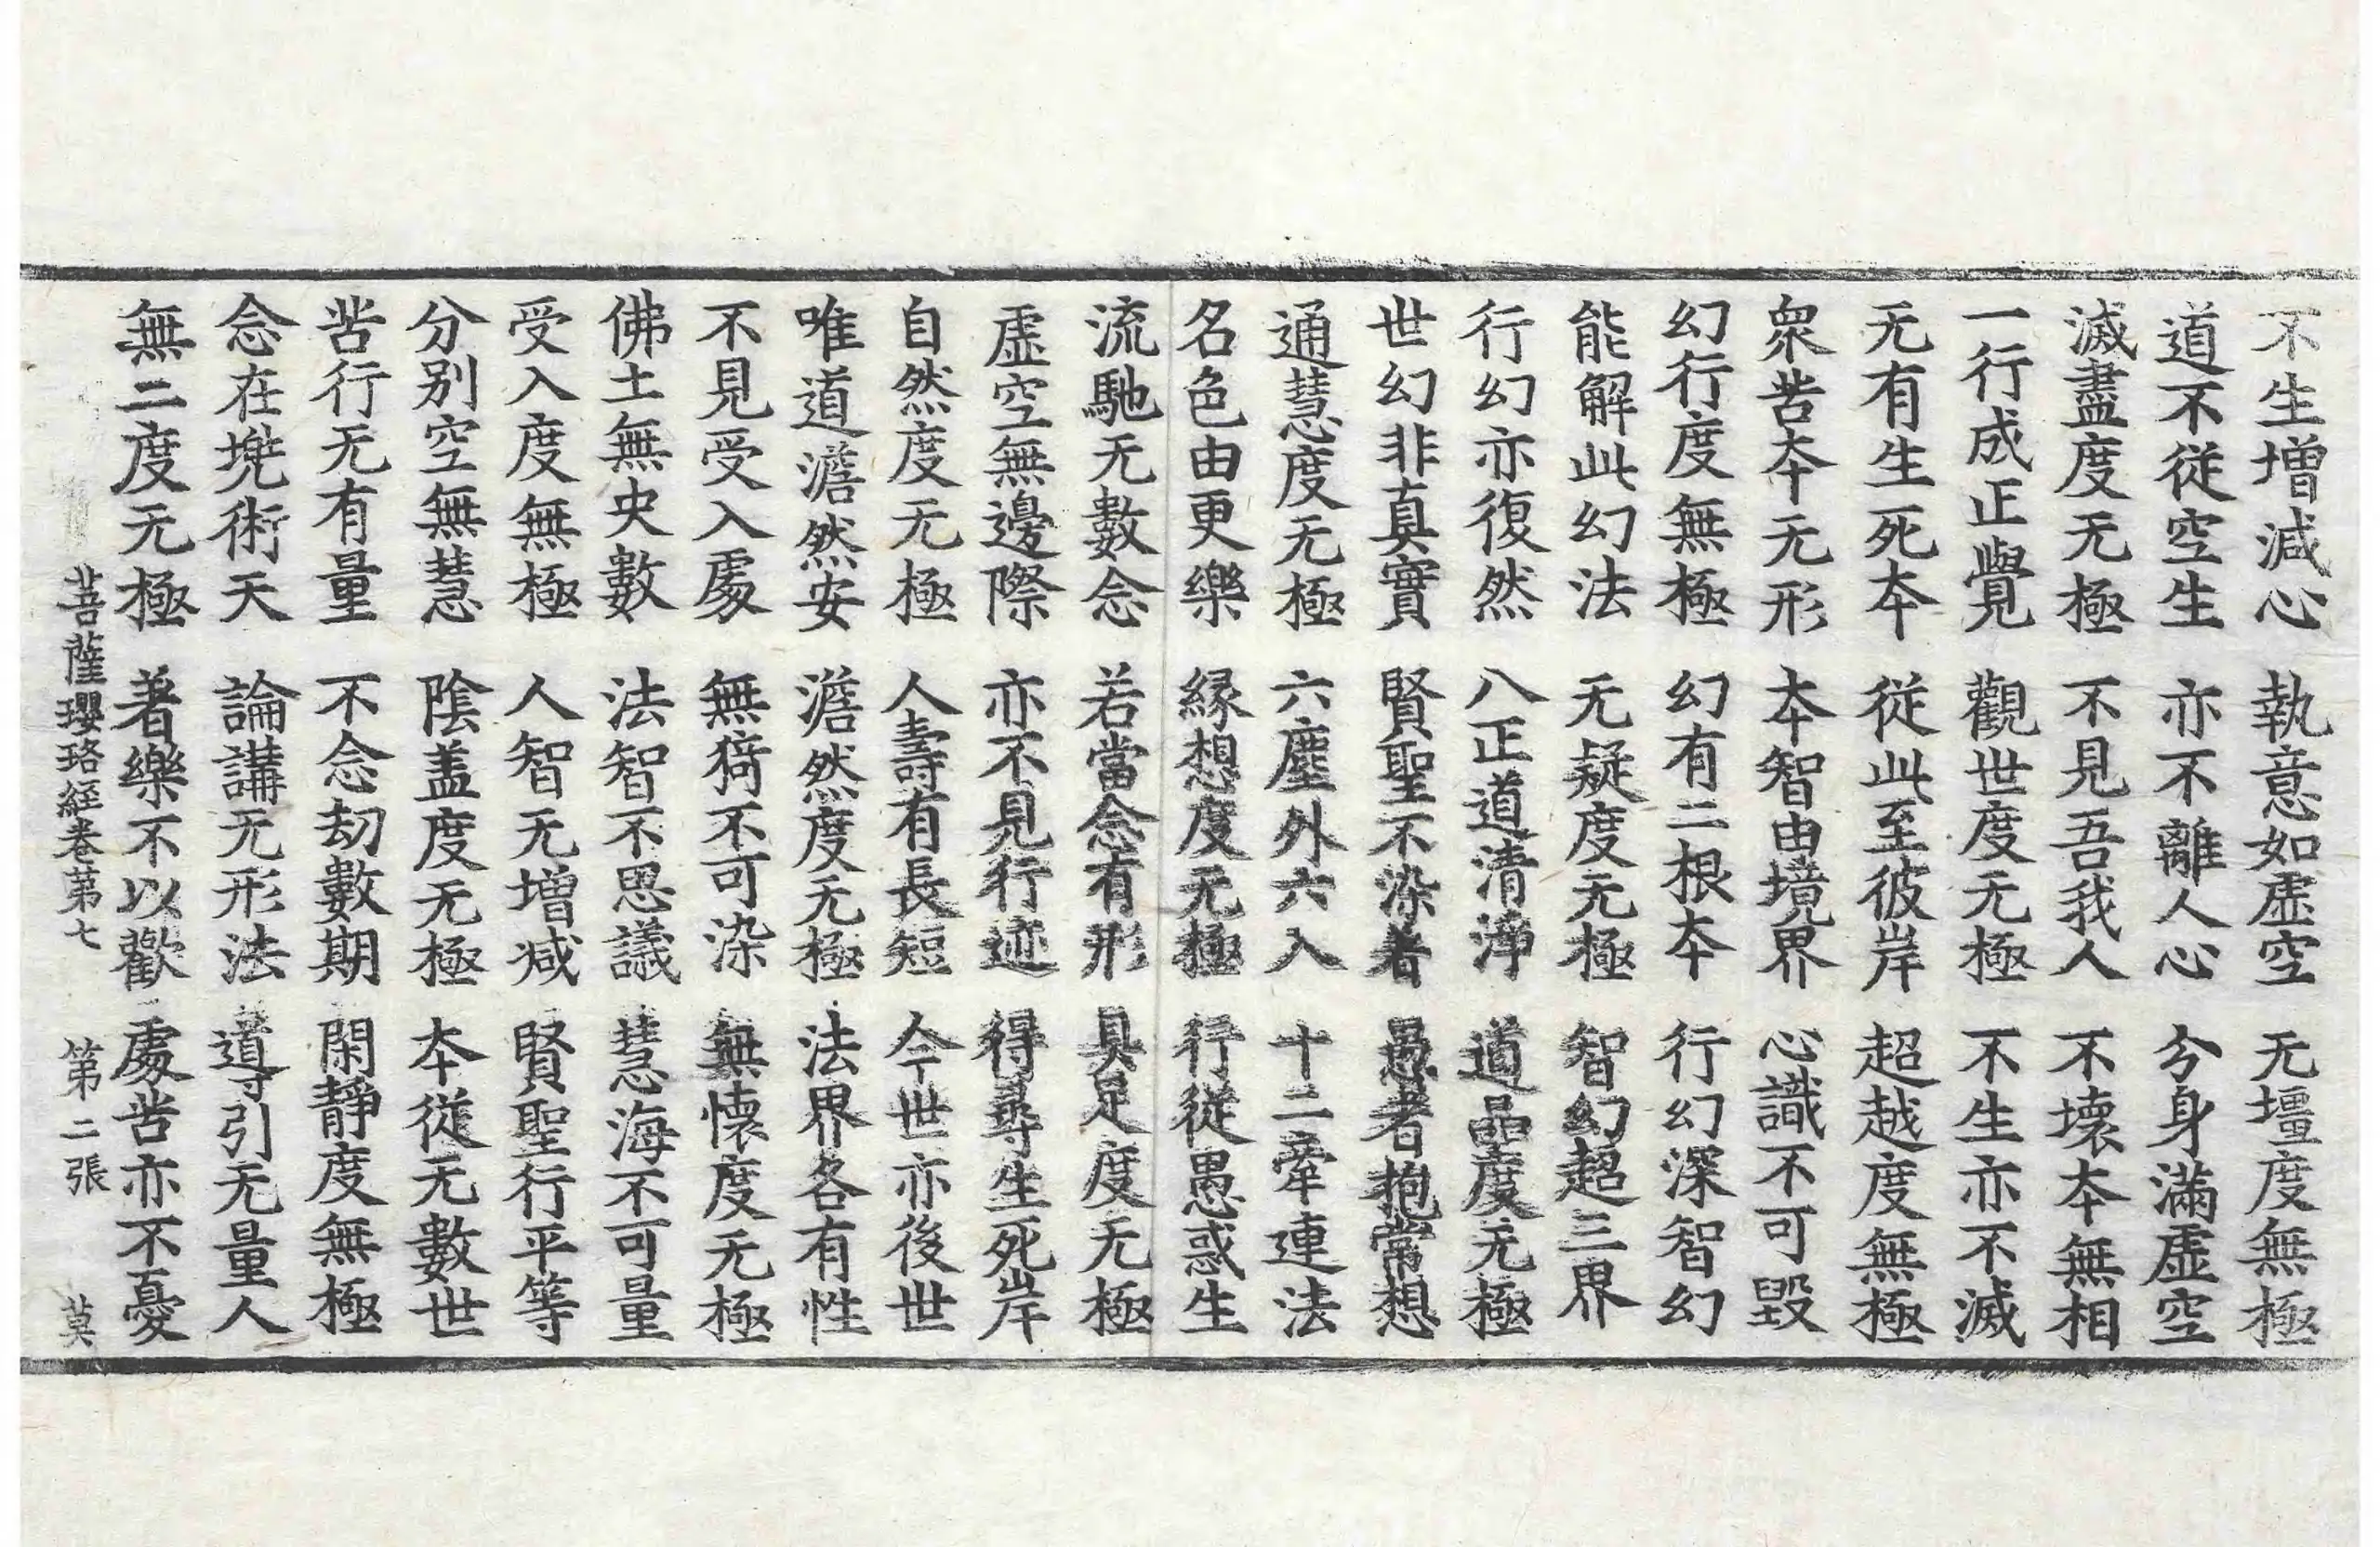 不生增減心 執意如虛空 无壃度無極
道不從空生 亦不離人心 分身滿虛空
滅盡度无極 不見吾我人 不壞本無相
一行成正覺 觀世度无極 不生亦不滅
无有生死本 從此至彼岸 超越度無極
衆苦本无形 本智由境界 心識不可毀
幻行度無極 幻有二根本 行幻深智幻
能解此幻法 无疑度无極 智幻超三界
行幻亦復然 八正道清淨 道品度无極
世幻非真實 賢聖不染著 愚者抱常想
通慧度无極 六塵外六入 十二牽連法
名色由更樂 緣想度无極 行從愚惑生
流馳无數念 若當念有形 具足度无極
虛空無邊際 亦不見行迹 得尋生死岸
自然度无極 人壽有長短 今世亦後世
唯道澹然安 澹然度无極 法界各有性
不見受入處 無猗不可染 無懷度无極
佛土無央數 法智不思議 慧海不可量
受入度無極 人智无增減 賢聖行平等
分別空無慧 陰盖度无極 本從无數世
苦行无有量 不念劫數期 閑靜度無極
念在兠術天 論講无形法 導引无量人
無二度无極 著樂不以歡 處苦亦不憂
菩薩瓔珞經卷第七 第二張 莫